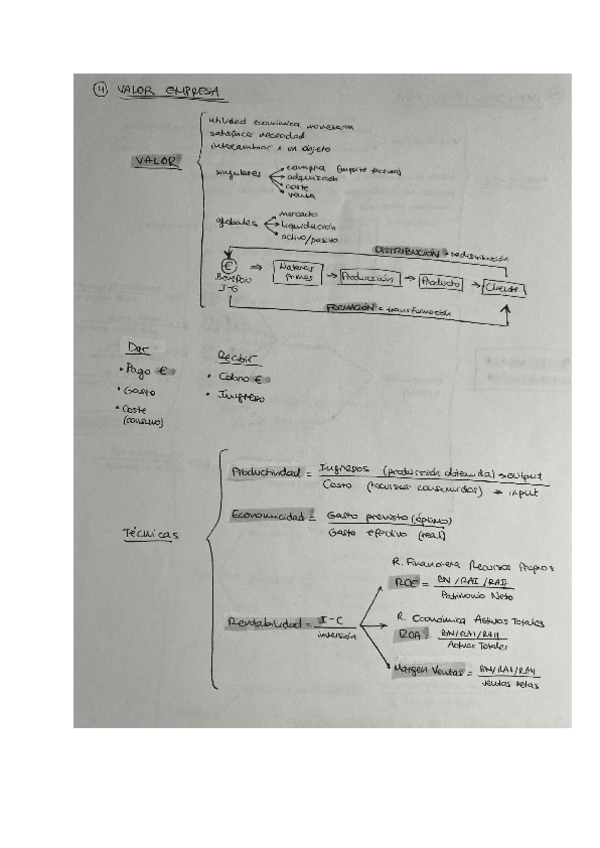 ④ VALOR EMPRESA
utilidad económica monetaria
satisfacer necesidad
intercambiar x un objeto
VALOR
singulares
compra (importe factura)
adquisición
coste
venta
globales
mercado
liquidación
activo/pasivo
DISTRIBUCIÓN = redistribución
€ ⇒ Materias primas → Producción → Producto → Cliente
Beneficio
I-G
FORMACIÓN = transformación
Dar
• Pago €
• Gasto
• Coste
(consumo)
Recibir
• Cobro €
• Ingreso
Técnicas
Productividad = Ingresos (producción obtenida) → output
Costo (recursos consumidos) → input
Economicidad = Gasto previsto (óptimo)
Gasto efectivo (real)
Rentabilidad = I-C
inversión
R. Financiera Recursos Propios
ROE = BN/RAI/RAII
Patrimonio Neto
R. Económica Activos Totales
ROA = BN/RAI/RAII
Activos Totales
Margen Ventas = BN/RAI/RAII
ventas netas